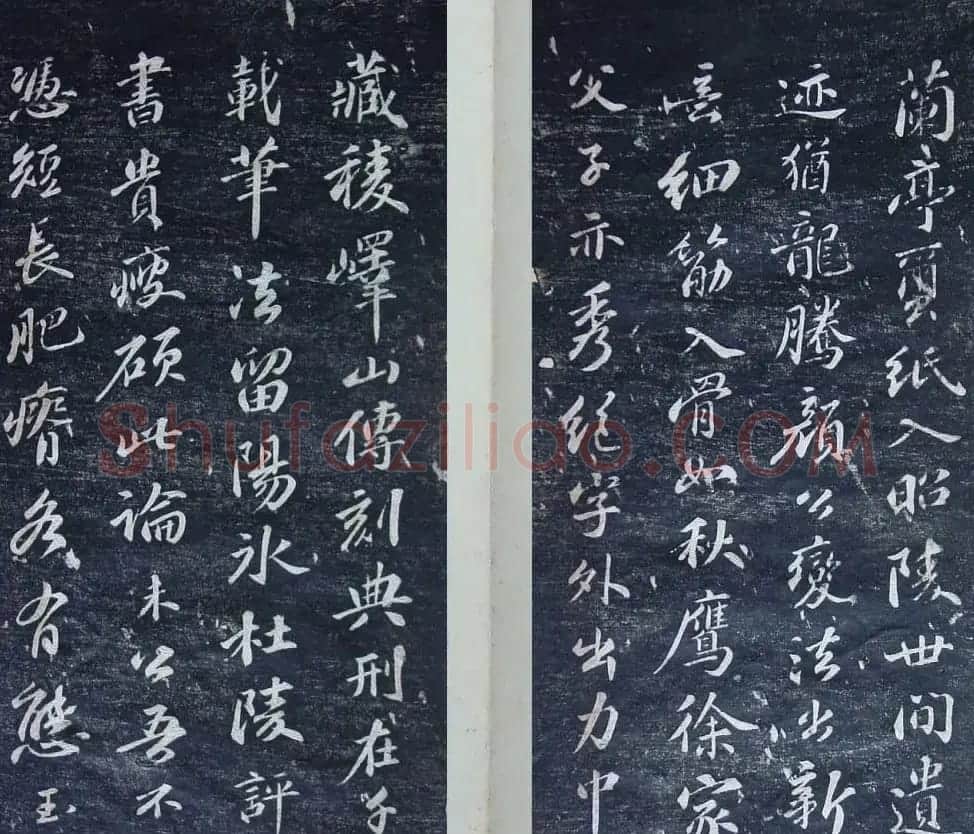 蘭亭蠒紙入昭陵世間遺
迹猶龍騰顏公變法出新
意細筋入骨如秋鷹徐家
父子亦秀絕字外出力中
藏稜嶧山傳刻典刑在千
載筆法留陽冰杜陵評
書貴瘦硬此論未公吾不
憑短長肥瘠各有態玉
Shufaziliao.COM